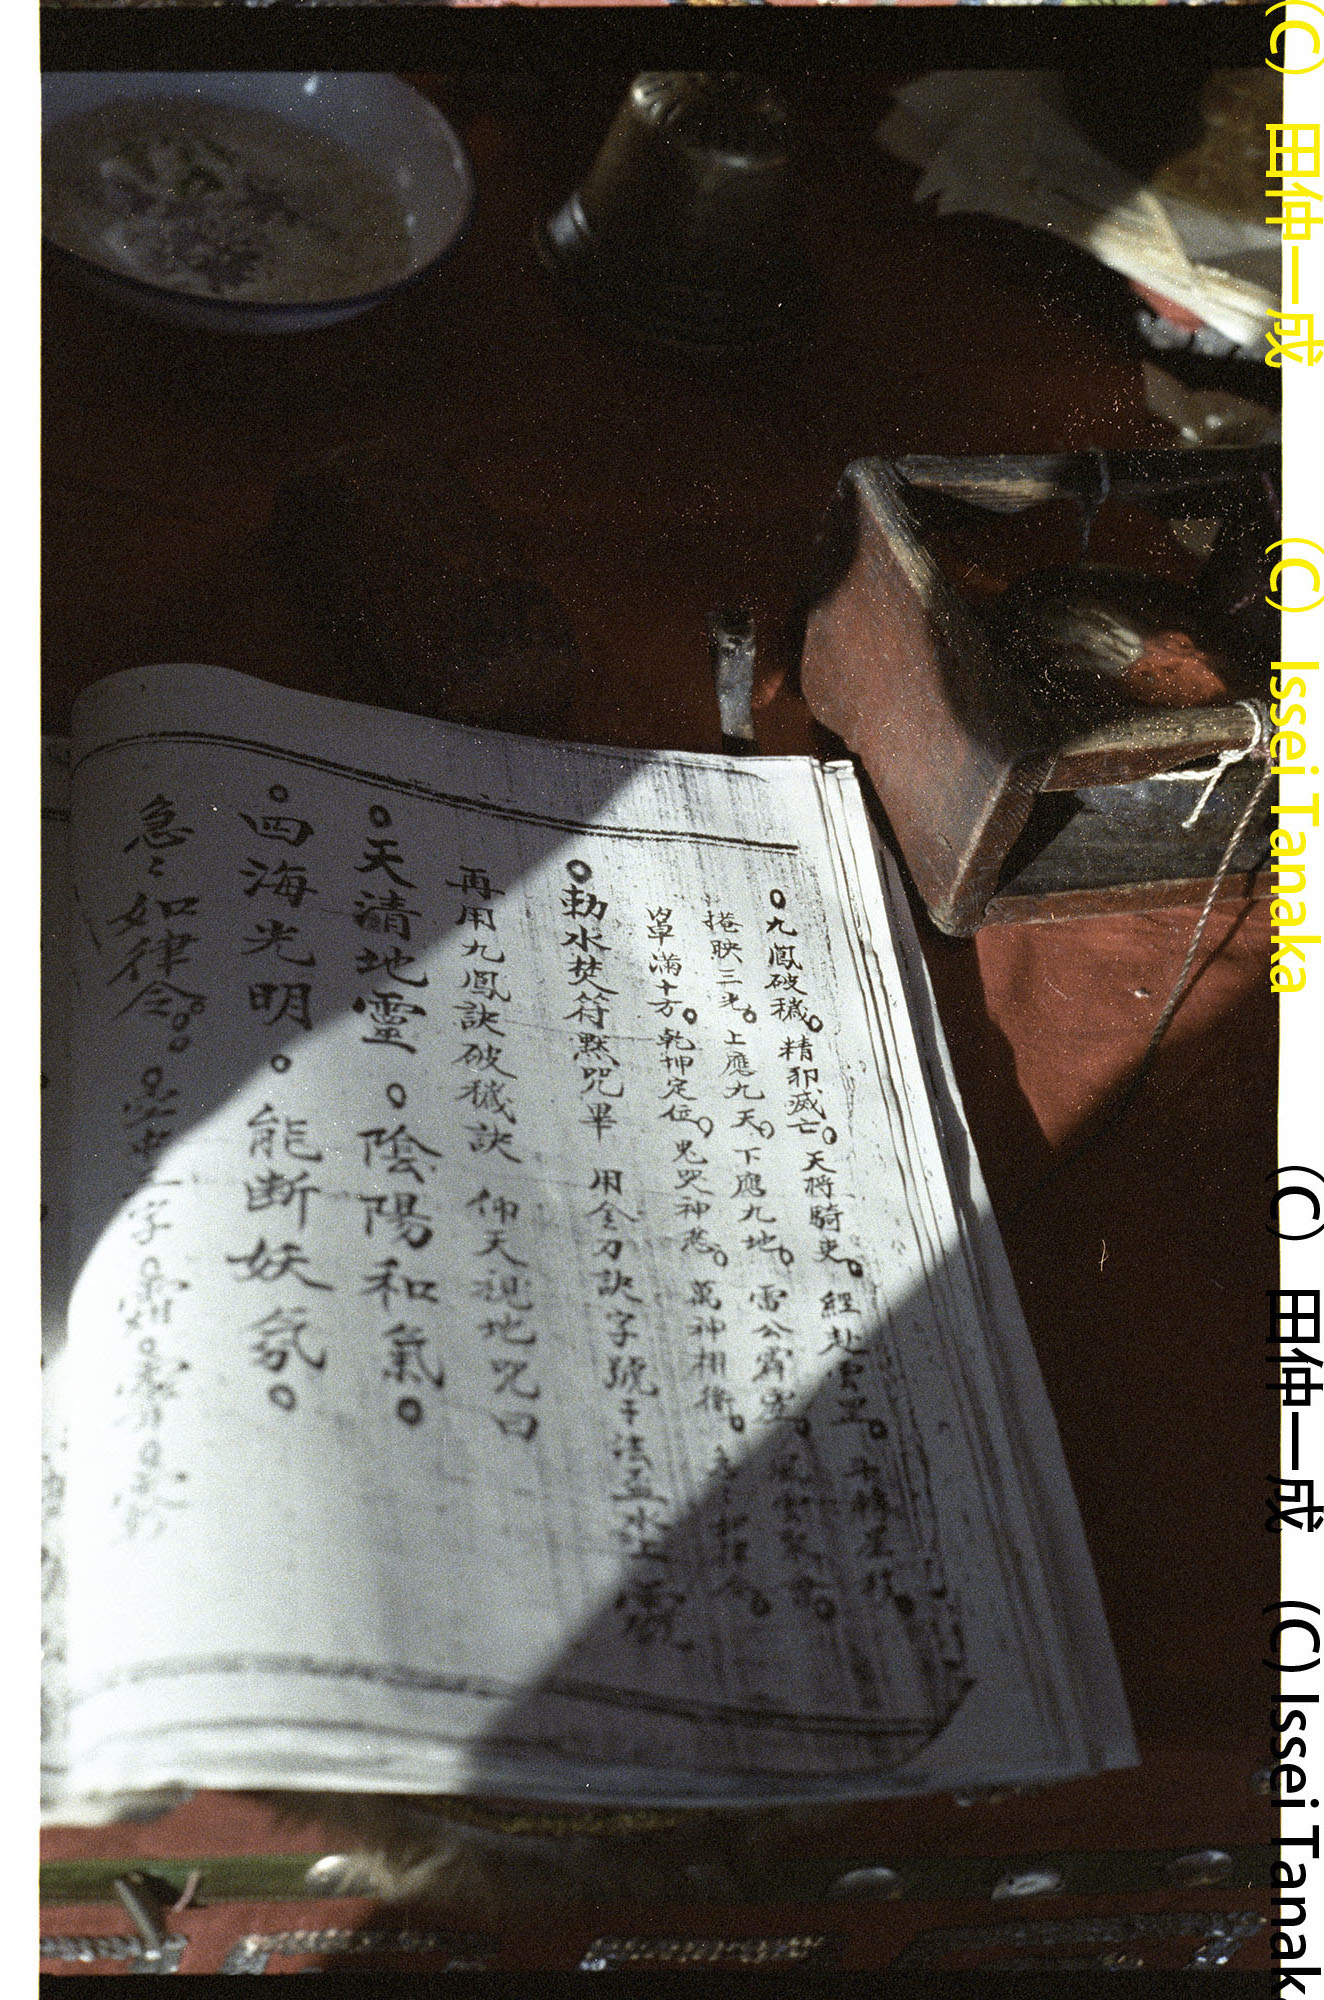 九鳳破穢。精邪滅亡。天將騎吏。經赴
掩映三光。上應九天。下應九地。雷公霹
滿十方。乾坤定位。鬼哭神愁。萬神相衛。
勅水焚符黙咒畢 用金刀訣字號于法盂水上
再用九鳳訣破穢訣 仰天視地咒曰
天清地靈。陰陽和氣。
四海光明。能断妖氛。
急〻如律令。
字
(C) 田仲一成 (C) Issei Tanaka (C) 田仲一成 (C) Issei Tanak